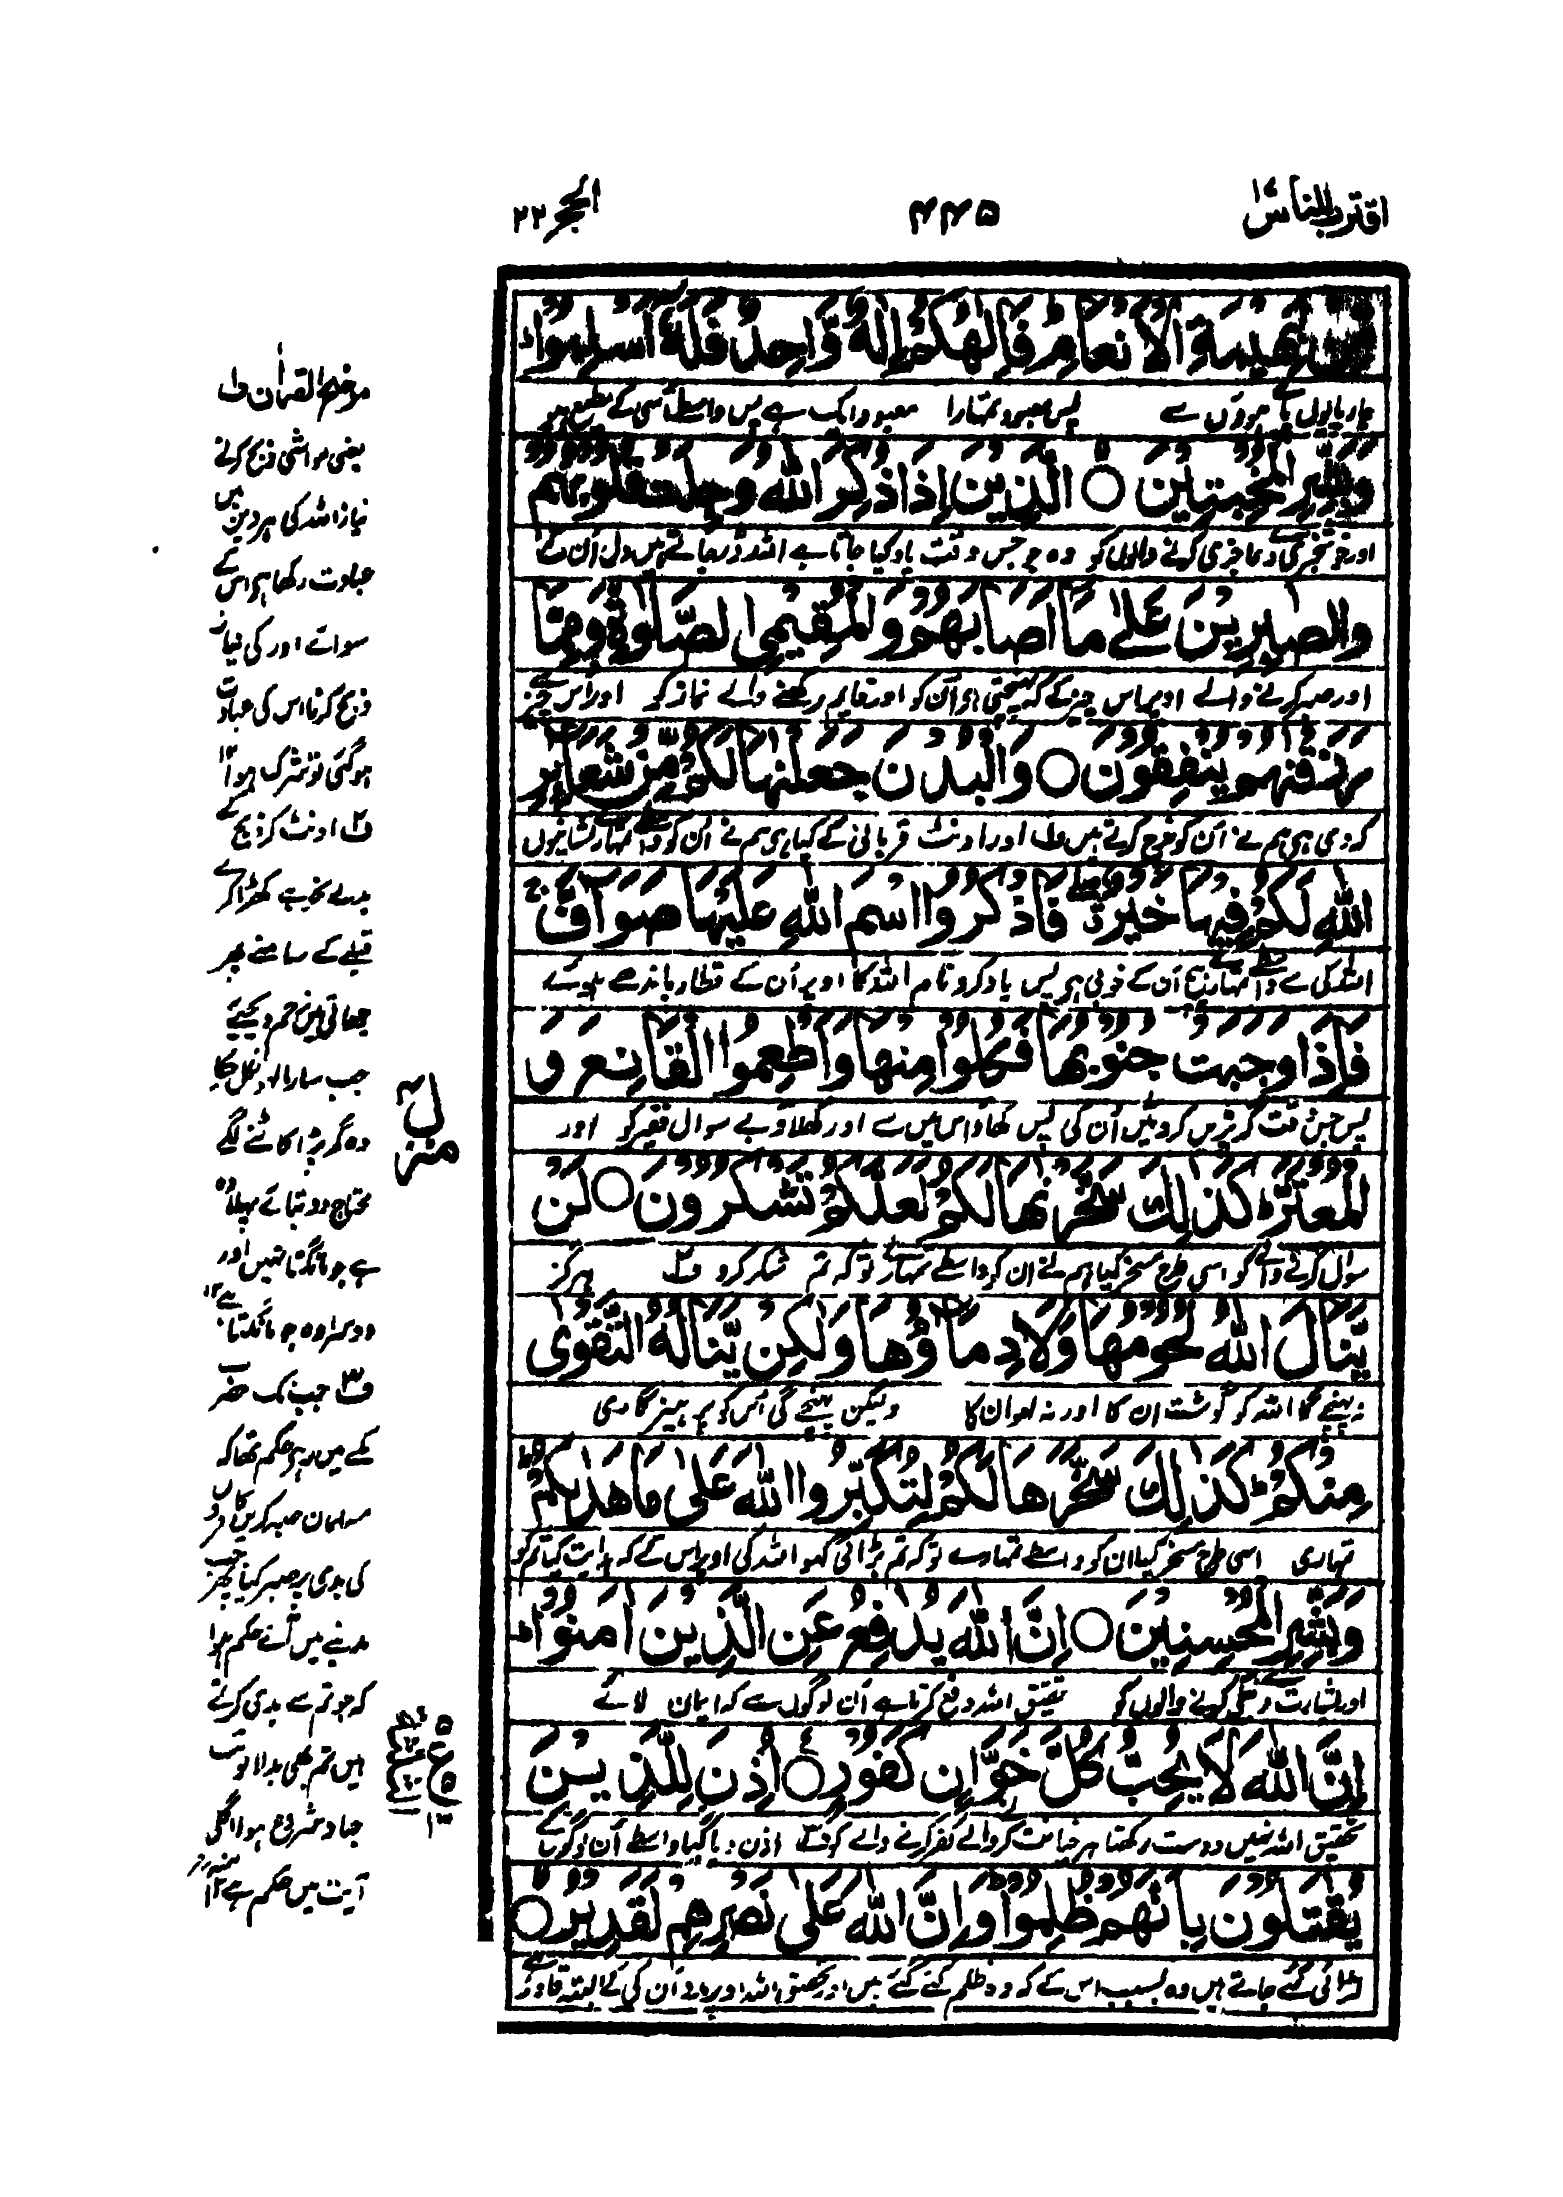 اقترب للناس ۱۷
۴۴۵
الحج ۲۲
بَهِيمَةِ الْأَنْعَامِ ۗ فَإِلَٰهُكُمْ إِلَٰهٌ وَّاحِدٌ فَلَهُ أَسْلِمُوا ۗ
پس معبود تمہارا معبود ایک ہے پس واسطے اسی کے مطیع ہو
وَبَشِّرِ الْمُخْبِتِينَ ○ الَّذِينَ إِذَا ذُكِرَ اللَّهُ وَجِلَتْ قُلُوبُهُمْ
اور خوشخبری دے عاجزی کرنے والوں کو وہ جو جس وقت یاد کیا جاتا ہے اللہ ڈر جاتے ہیں دل ان کے
وَالصَّابِرِينَ عَلَىٰ مَا أَصَابَهُمْ وَالْمُقِيمِي الصَّلَوٰةِ وَمِمَّا
اور صبر کرنے والے اوپر اس چیز کے کہ پہنچتی ہے ان کو اور قایم رکھنے والے نماز کو اور اس چیز سے
رَزَقْنَٰهُمْ يُنْفِقُونَ ○ وَالْبُدْنَ جَعَلْنَٰهَا لَكُمْ مِّنْ شَعَائِرِ
کہ دی ہے ہم نے ان کو خرچ کرتے ہیں ف۱ اور اونٹ قربانی کے کیا ہے ہم نے ان کو واسطے تمہارے نشانیوں
اللَّهِ لَكُمْ فِيهَا خَيْرٌ ۖ فَاذْكُرُوا اسْمَ اللَّهِ عَلَيْهَا صَوَافَّ ۚ
اللہ کی سے واسطے تمہارے بیچ ان کے خوبی ہے پس یاد کرو نام اللہ کا اوپر ان کے قطار باندھے ہوئے
فَإِذَا وَجَبَتْ جُنُوبُهَا فَكُلُوا مِنْهَا وَأَطْعِمُوا الْقَانِعَ وَ
پس جس وقت گر پڑیں کروٹیں ان کی پس کھاؤ اس میں سے اور کھلاؤ بے سوال فقیر کو اور
الْمُعْتَرَّ ۚ كَذَٰلِكَ سَخَّرْنَٰهَا لَكُمْ لَعَلَّكُمْ تَشْكُرُونَ ○ لَنْ
سوال کرنے والے کو اسی طرح مسخر کیا ہم نے ان کو واسطے تمہارے تو کہ تم شکر کرو ف۲ ہرگز
يَّنَالَ اللَّهَ لُحُومُهَا وَلَا دِمَاؤُهَا وَلَٰكِنْ يَّنَالُهُ التَّقْوَىٰ
نہ پہنچے گا اللہ کو گوشت ان کا اور نہ لہو ان کا ولیکن پہنچے گی اس کو پرہیزگاری
مِنْكُمْ ۚ كَذَٰلِكَ سَخَّرَهَا لَكُمْ لِتُكَبِّرُوا اللَّهَ عَلَىٰ مَا هَدَٰىكُمْ ۗ
تمہاری اسی طرح مسخر کیا ان کو واسطے تمہارے تو کہ تم بڑائی کہو اللہ کی اوپر اس کے کہ ہدایت کیا تم کو
وَبَشِّرِ الْمُحْسِنِينَ ○ إِنَّ اللَّهَ يُدَٰفِعُ عَنِ الَّذِينَ آمَنُوا ۗ
اور بشارت دے نیکی کرنے والوں کو تحقیق اللہ دفع کرتا ہے ان لوگوں سے کہ ایمان لائے
إِنَّ اللَّهَ لَا يُحِبُّ كُلَّ خَوَّانٍ كَفُورٍ ○ أُذِنَ لِلَّذِينَ
تحقیق اللہ نہیں دوست رکھتا ہر خیانت کرنے والے کفر کرنے والے کو ف۳ اذن دیا گیا واسطے ان لوگوں کے
يُقَٰتَلُونَ بِأَنَّهُمْ ظُلِمُوا ۚ وَإِنَّ اللَّهَ عَلَىٰ نَصْرِهِمْ لَقَدِيرٌ ○
لڑائی کئے جاتے ہیں وہ بسبب اس کے کہ وہ ظلم کئے گئے ہیں اور تحقیق اللہ اوپر مدد ان کی کے البتہ قادر ہے
موضح القرآن ف۱
یعنی مواشی ذبح کرنے
نیاز اللہ کی ہر دین میں
عبادت رکھا ہے اس کے
سوائے اور کی نیاز
ذبح کرنا اس کی عبادت
ہو گئی تو شرک ہوا ۱۲
ف۲ اونٹ کو ذبح کے
بدلے نحر ہے کھڑا کر کے
قبلے کے سامنے پھر
چھاتی میں زخم دیجئے
جب سارا لہو نکل چکا
وہ گر پڑا کاٹنے لگے
محتاج دو بتائے پہلا وہ
ہے جو مانگتا نہیں اور
دوسرا وہ جو مانگتا ہے ۱۲
ف۳ جب تک حضرت
مکے میں رہے حکم تھا کہ
مسلمان صبر کریں کافروں
کی بدی پر صبر کیا پھر جب
مدینے میں آئے حکم ہوا
کہ جو تم سے بدی کرتے
ہیں تم بھی بدلا لو تب
جہاد شروع ہوا اگلی
آیت میں حکم ہے ۱۲
منزل ۴
ع ۵